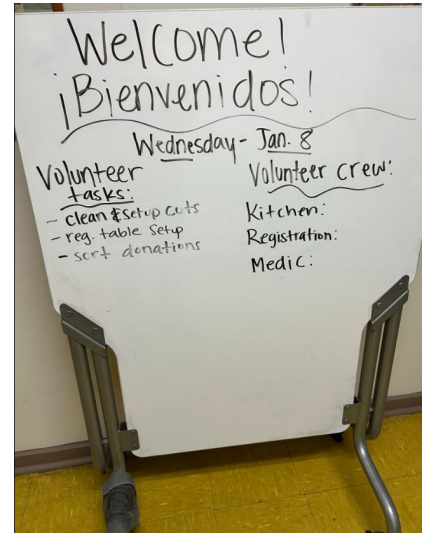 Welcome!
¡Bienvenidos!
Wednesday - Jan. 8
Volunteer
tasks:
- clean & setup cots
- reg. table setup
- sort donations
Volunteer crew:
Kitchen:
Registration:
Medic: